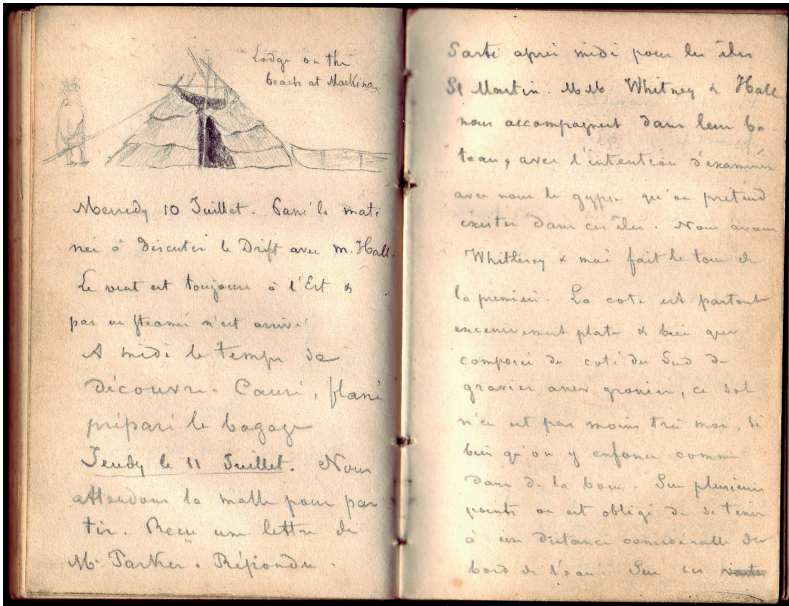 Lodge on the
beach at Mackinac
Mercredy 10 Juillet. Passé la mati
née à discuter le Drift avec M. Hall.
Le vent est toujours à l'Est &
pas un steamer n'est arrivé
A midi le temps se
découvre. Causé, flané
préparé le bagage
Jeudy le 11 Juillet. Nous
attendons la malle pour par
tir. Reçu une lettre de
M. Parker. Répondu.
Parti après midi pour les îles
St Martin. MM. Whitney & Hall
nous accompagnent dans leur ba-
teau, avec l'intention d'examiner
avec nous le gypse qu'on prétend
exister dans ces îles. Nous avons
Whittlesey & moi fait le tour de
la première. La cote est partout
excessivement plate & bien que
composée du coté du Sud de
gravier assez grossier, ce sol
n'en est pas moins très mou, si
bien qu'on y enfonce comme
dans de la boue. Sur plusieurs
points on est obligé de se tenir
à une distance considerable du
bord de l'eau. Sur ces